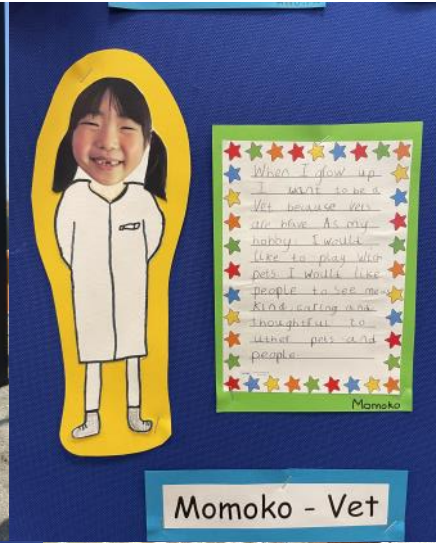 When I glow up
I want to be a
Vet because vets
are brave As my
hobby I would
like to play with
pets I would like
people to see me
kind, caring and
thoughtful to
uther pets and
people
Momoko
Momoko - Vet